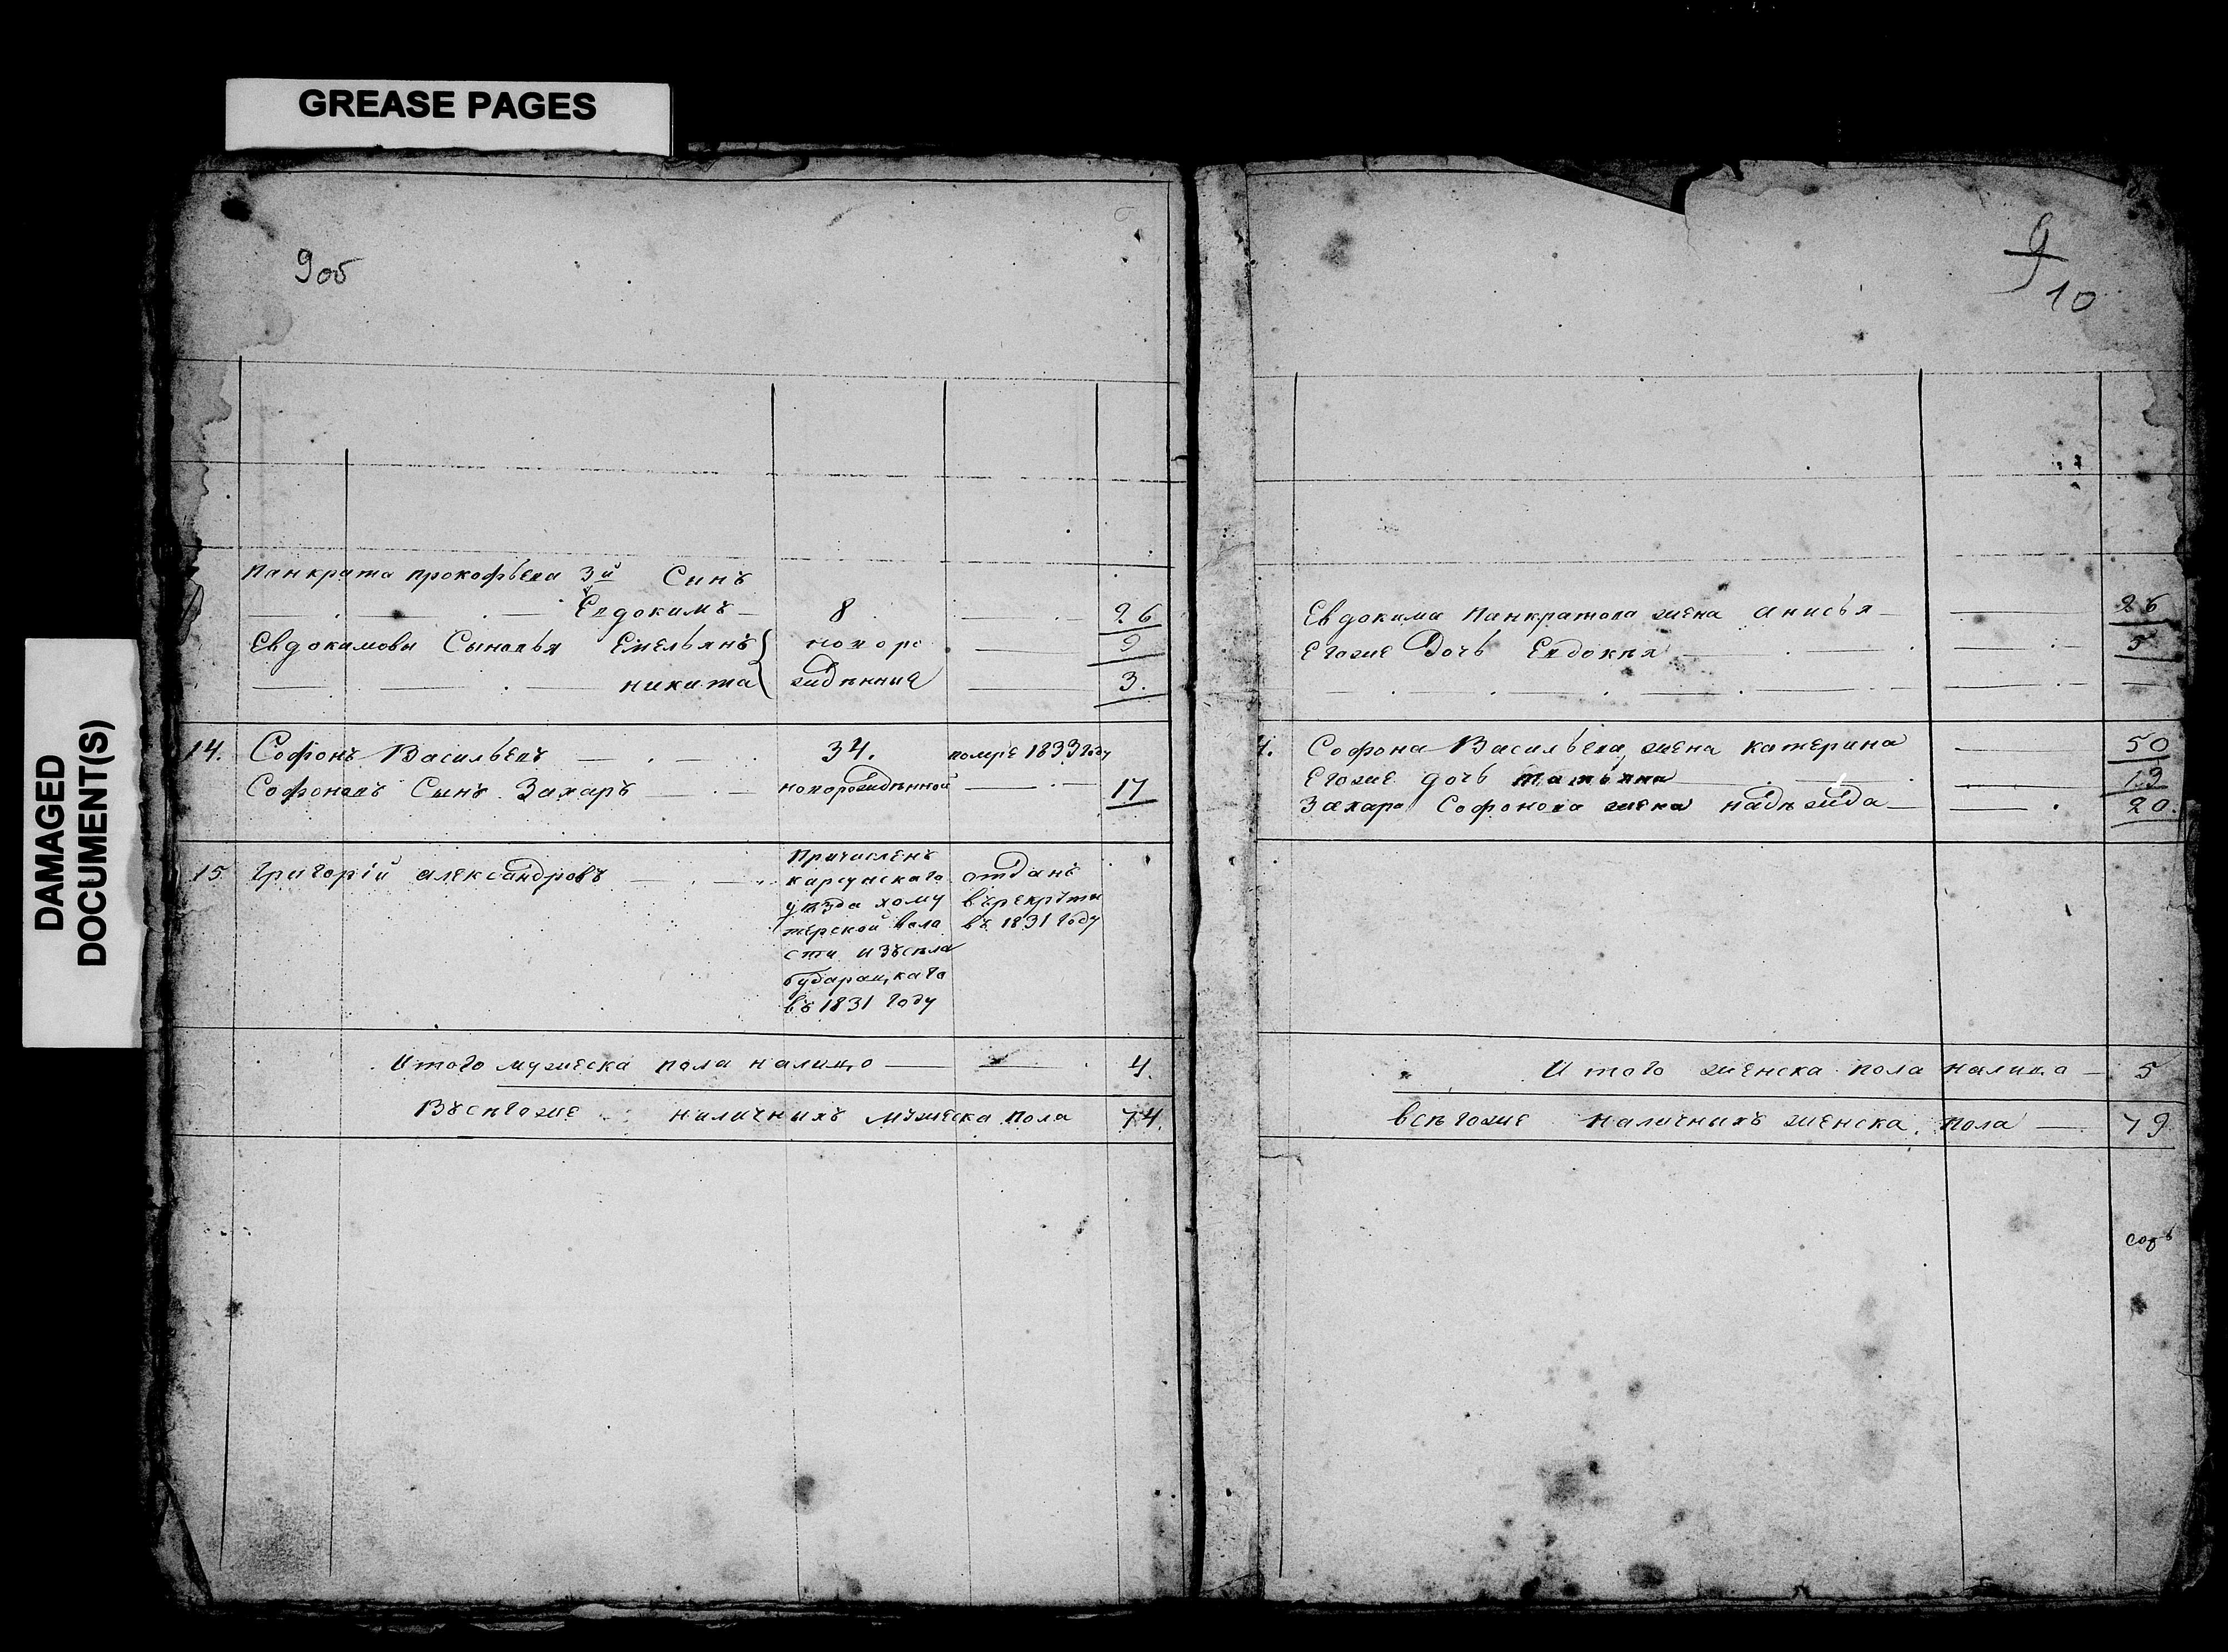 GREASE PAGES
DAMAGED
DOCUMENT(S)
9об
Панкрата прокофьева 3й Сынъ
Евдокимъ 8 26
Евдокимовы Сыновья Емельянъ новоро 9
никита жденныя 3.
14. Софонъ Васильевъ 34. помре 1833 году
Софоновъ Сынъ Захаръ новорожденной 17
15 Григорій александровъ Причисленъ
карсунскаго отданъ
уѣзда хому въ рекруты
терской вола въ 1831 году
сти изъ села
въ 1831 году
Итого мужеска пола налицо 4.
Всѣгоже наличныхъ мужеска пола 74.
9
10
Евдокима Панкратова жена анисья 26
Егоже Дочь Евдокия 5
4. Софона Васильева жена катерина 50
Егоже дочь татьяна 19
Захара Софонова жена надѣжда 20.
Итого женска пола налицо 5
всѣгоже наличныхъ женска пола 79